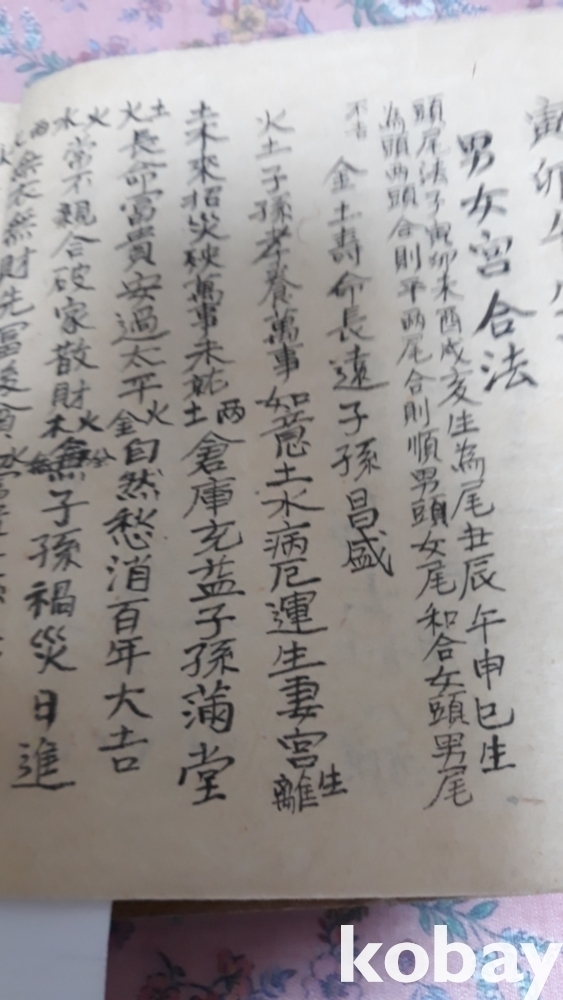 寅卯午
男女宮合法
頭尾法子寅卯未酉戌亥生為尾丑辰午申巳生
為頭两頭合則平两尾合則順男頭女尾和合女頭男尾
不吉 金土壽命長遠子孫昌盛
火土子孫孝養萬事如意土水病厄運生妻宮生離
土木來招災殃萬事未就两土倉庫充益子孫蒲堂
土火長命富貴安過太平火金自然愁消百年大吉
火水常不親合破家散財火木無子孫禍災日進
两 無衣無財先富後貧水
kobay